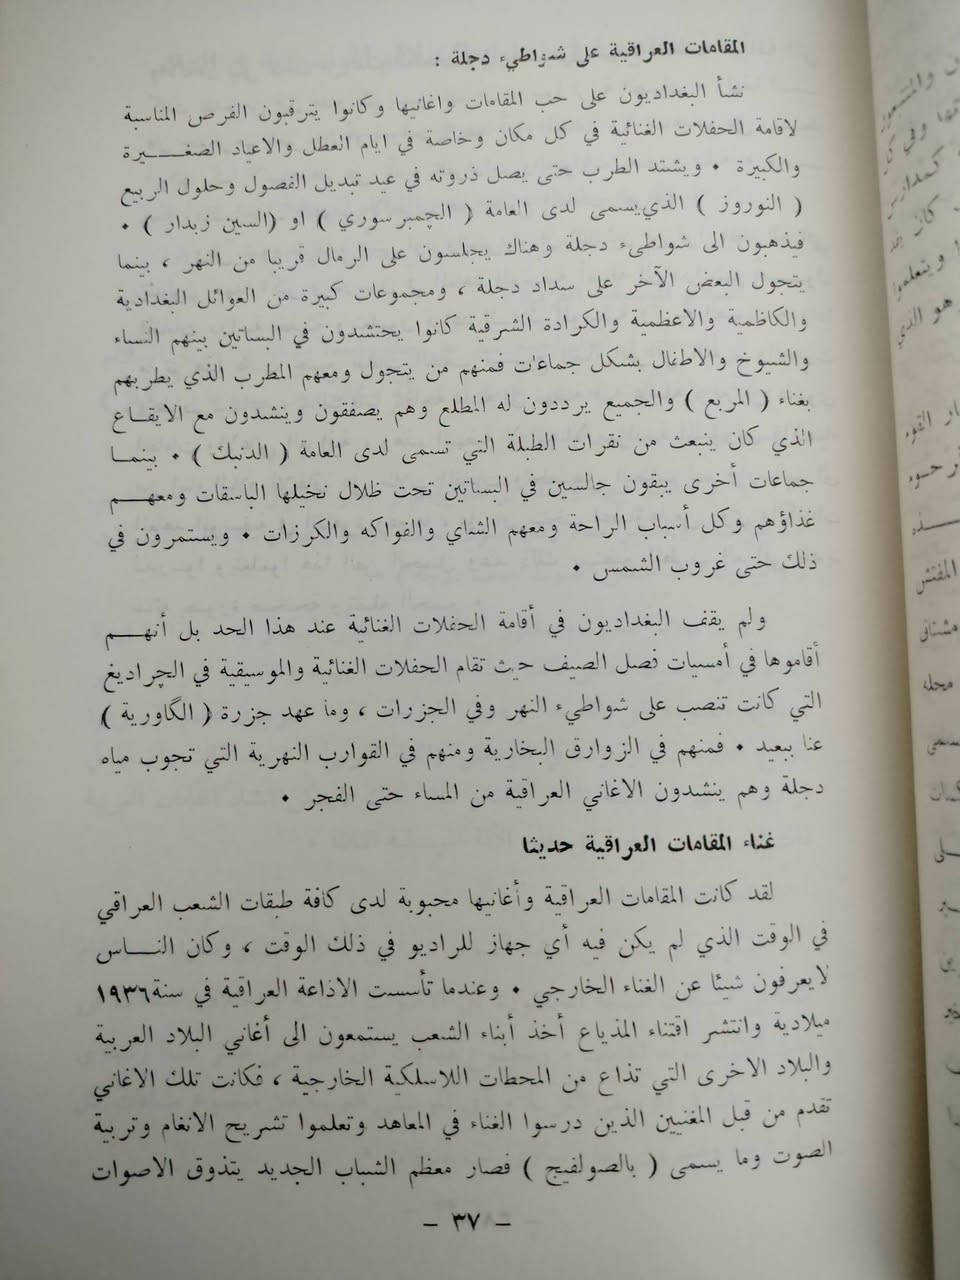 المقامات العراقية على شواطيء دجلة :
نشأ البغداديون على حب المقامات واغانيها وكانوا يترقبون الفرص المناسبة
لاقامة الحفلات الغنائية في كل مكان وخاصة في ايام العطل والاعياد الصغيرة
والكبيرة • ويشتد الطرب حتى يصل ذروته في عيد تبديل الفصول وحلول الربيع
( النوروز ) الذي يسمى لدى العامة ( الچمبرسوري ) او (السين زبدار ) •
فيذهبون الى شواطيء دجلة وهناك يجلسون على الرمال قريبا من النهر ، بينما
يتجول البعض الآخر على سداد دجلة ، ومجموعات كبيرة من العوائل البغدادية
والكاظمية والاعظمية والكرادة الشرقية كانوا يحتشدون في البساتين بينهم النساء
والشيوخ والاطفال بشكل جماعات فمنهم من يتجول ومعهم المطرب الذي يطربهم
بغناء ( المربع ) والجميع يرددون له المطلع وهم يصفقون وينشدون مع الايقاع
الذي كان ينبعث من نقرات الطبلة التي تسمى لدى العامة ( الدنبك ) • بينما
جماعات أخرى يبقون جالسين في البساتين تحت ظلال نخيلها الباسقات ومعهم
غذاؤهم وكل أسباب الراحة ومعهم الشاي والفواكه والكرزات • ويستمرون في
ذلك حتى غروب الشمس •
ولم يقف البغداديون في أقامة الحفلات الغنائية عند هذا الحد بل أنهم
أقاموها في أمسيات فصل الصيف حيث تقام الحفلات الغنائية والموسيقية في الچراديغ
التي كانت تنصب على شواطيء النهر وفي الجزرات ، وما عهد جزرة ( الگاورية )
عنا ببعيد • فمنهم في الزوارق البخارية ومنهم في القوارب النهرية التي تجوب مياه
دجلة وهم ينشدون الاغاني العراقية من المساء حتى الفجر •
غناء المقامات العراقية حديثا
لقد كانت المقامات العراقية وأغانيها محبوبة لدى كافة طبقات الشعب العراقي
في الوقت الذي لم يكن فيه أي جهاز للراديو في ذلك الوقت ، وكان الناس
لايعرفون شيئا عن الغناء الخارجي • وعندما تأسست الاذاعة العراقية في سنة ١٩٣٦
ميلادية وانتشر اقتناء المذياع أخذ أبناء الشعب يستمعون الى أغاني البلاد العربية
والبلاد الاخرى التي تذاع من المحطات اللاسلكية الخارجية ، فكانت تلك الاغاني
تقدم من قبل المغنيين الذين درسوا الغناء في المعاهد وتعلموا تشريح الانغام وتربية
الصوت وما يسمى ( بالصولفيج ) فصار معظم الشباب الجديد يتذوق الاصوات
- ٣٧ -